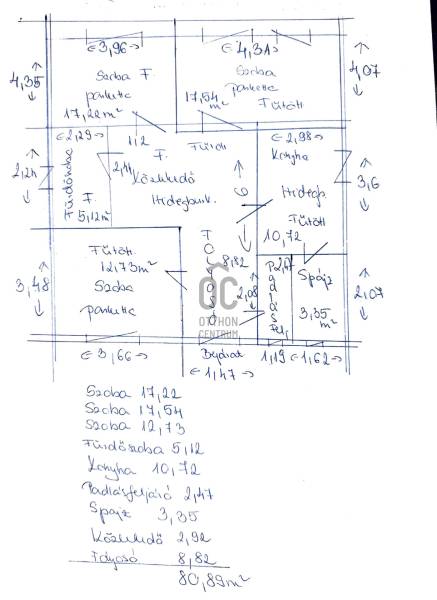 ← 3,96 →
← 4,31 →
↑ 4,35 ↓
Szoba F.
parketta
17,22 m²
Szoba
parketta
Fűtött
17,54 m²
↑ 4,07 ↓
← 2,29 →
1,2
Fürdőszoba
F.
5,12 m²
F.
Közlekedő
Hidegburk.
← 2,98 →
Konyha
Hidegb.
Fűtött
10,72
↑ 3,6 ↓
↑ 6 ↓
Fűtött
12,73 m²
Szoba
parketta
↑ 3,48 ↓
8,82
2,47
Padlásfelj.
↑ 2,08 ↓
Spájz
3,35 m²
↑ 2,07 ↓
OC
OTTHON
CENTRUM
← 3,66 →
Bejárat
← 1,47 →
1,19
← 1,62 →
Szoba 17,22
Szoba 17,54
Szoba 12,73
Fürdőszoba 5,12
Konyha 10,72
Padlásfeljáró 2,47
Spájz 3,35
Közlekedő 2,92
Folyosó 8,82
80,89 m²